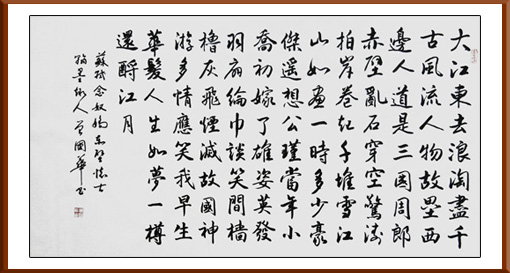 大江東去浪淘盡千
古風流人物故壘西
邊人道是三国周郎
赤壁亂石穿空驚濤
拍岸卷起千堆雪江
山如畫一時多少豪
傑遥想公瑾當年小
喬初嫁了雄姿英發
羽扇綸巾談笑間檣
櫓灰飛煙滅故國神
游多情應笑我早生
華髮人生如夢一樽
還酹江月
蘇軾念奴嬌赤壁懷古
人曾國華书